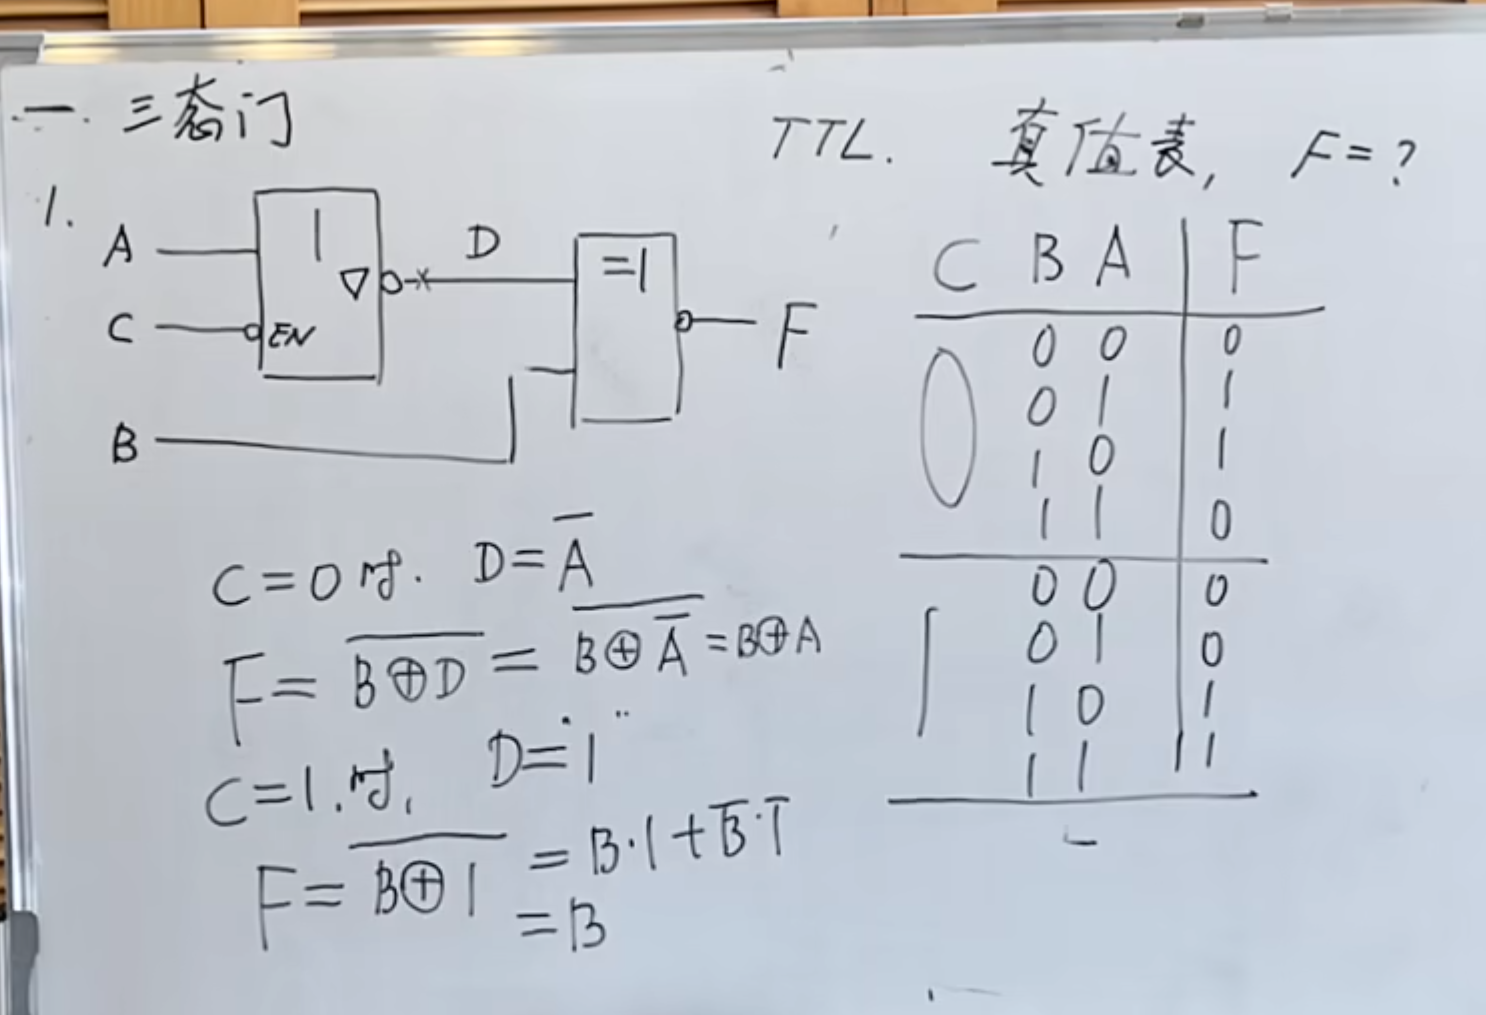 一. 三态门
TTL. 真值表, F=?
1.
A
1
▽
D
=1
C
EN
F
B
C=0时. D=A̅
F= \overline{B⊕D} = \overline{B⊕A̅} = B⊕A
C=1.时, D="1"
F= \overline{B⊕1} = B·1+B̅·1̅
=B
C B A F
0 0 0 0
0 1 1
1 0 1
1 1 0
1 0 0 0
0 1 0
1 0 1
1 1 1